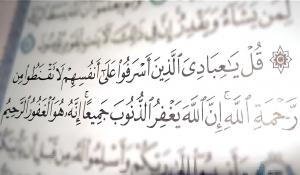 لِمَن يَشَاءُ وَيَقْدِرُ
قُلْ يَـٰعِبَادِىَ ٱلَّذِينَ أَسْرَفُوا۟ عَلَىٰٓ أَنفُسِهِمْ لَا تَقْنَطُوا۟ مِن
رَّحْمَةِ ٱللَّهِ ۚ إِنَّ ٱللَّهَ يَغْفِرُ ٱلذُّنُوبَ جَمِيعًا ۚ إِنَّهُۥ هُوَ ٱلْغَفُورُ ٱلرَّحِيمُ